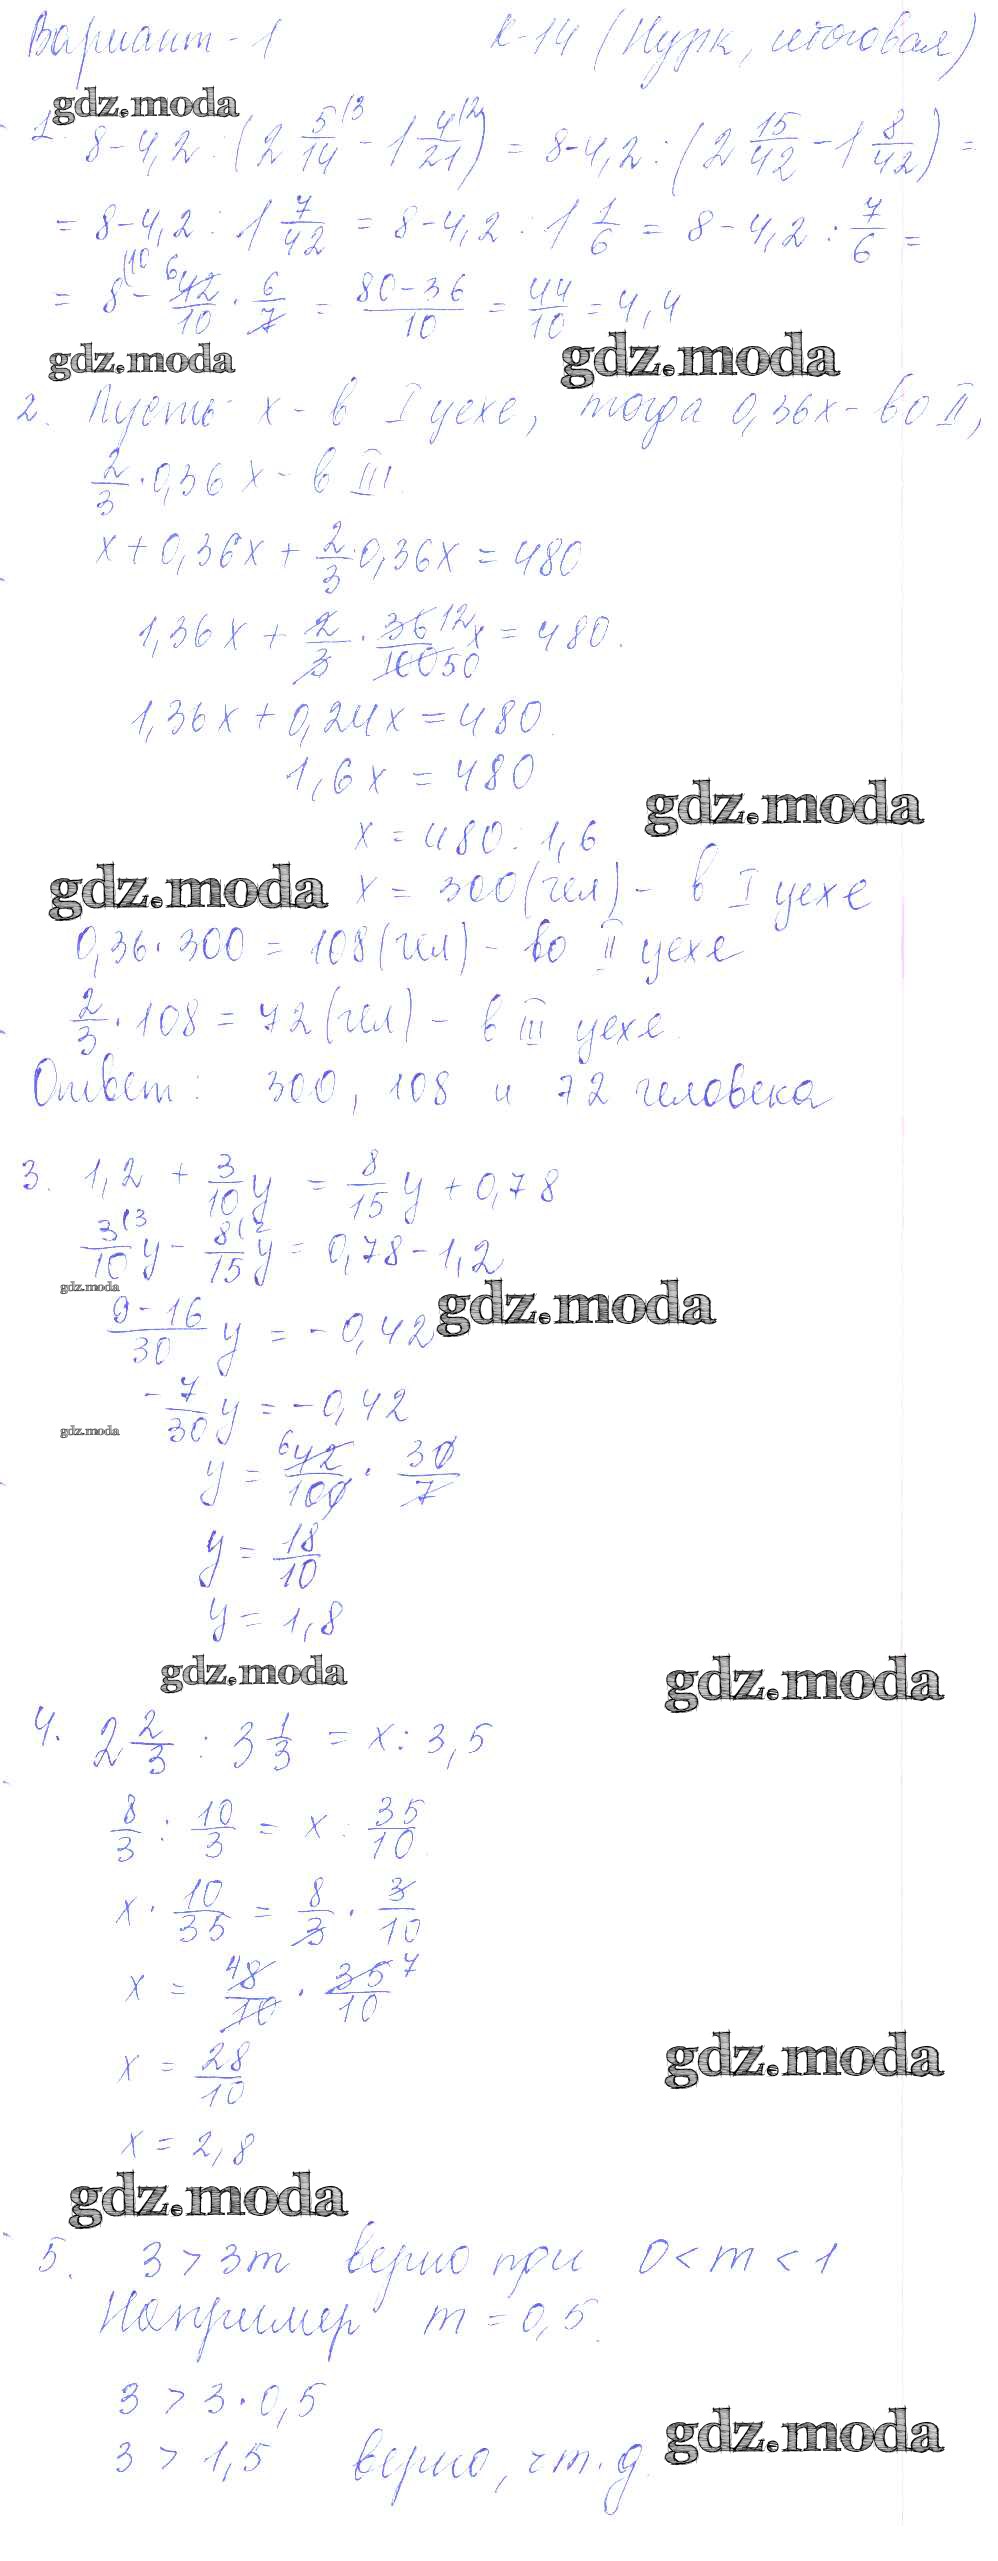 Вариант-1 К-14 (Нурк, итоговая)
gdz.moda
1. 8-4,2 : (2 5/14 (3 - 1 4/21 (2) = 8-4,2 : (2 15/42 - 1 8/42) =
= 8-4,2 : 1 7/42 = 8-4,2 : 1 1/6 = 8-4,2 : 7/6 =
= 8 (10 - 6 42/10 · 6/7 = 80-36/10 = 44/10 = 4,4
gdz.moda gdz.moda
2. Пусть x - в I цехе, тогда 0,36x - во II,
2/3 · 0,36 x - в III.
x + 0,36x + 2/3 · 0,36x = 480
1,36x + 2/3 · 36 12/100 50 x = 480.
1,36x + 0,24x = 480.
1,6x = 480
gdz.moda
x = 480 : 1,6
gdz.moda x = 300 (чел) - в I цехе
0,36 · 300 = 108 (чел) - во II цехе
2/3 · 108 = 72 (чел) - в III цехе.
Ответ: 300, 108 и 72 человека
3. 1,2 + 3/10 y = 8/15 y + 0,78
3(3/10 y - 8(2/15 y = 0,78 - 1,2
gdz.moda gdz.moda
9-16/30 y = -0,42
-7/30 y = -0,42
gdz.moda
y = 6 42/100 · 30/7
y = 18/10
y = 1,8
gdz.moda gdz.moda
4. 2 2/3 : 3 1/3 = x : 3,5
8/3 : 10/3 = x : 35/10
x · 10/35 = 8/3 · 3/10
x = 4 8/10 · 35 7/10
x = 28/10
gdz.moda
x = 2,8
gdz.moda
5. 3 > 3m верно при 0 < m < 1
Например m = 0,5.
3 > 3 · 0,5
gdz.moda
3 > 1,5 верно, чт.д.